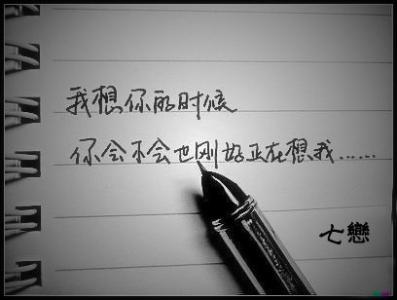 我想你的时候
你会不会也刚好正在想我……
七戀